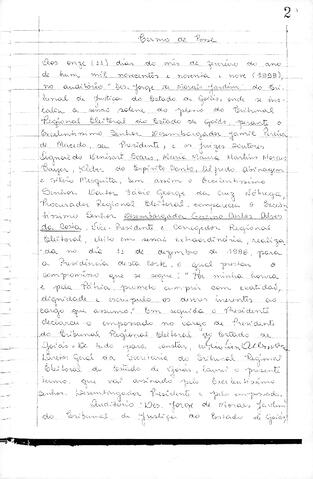 2
Termo de Posse
Aos onze (11) dias do mês de janeiro do ano
de hum mil novecentos e noventa e nove (1999),
no auditório "Des. Jorge de Morais Jardim" do Tri-
bunal de Justiça do Estado de Goiás, onde se ins-
talou a sessão solene, do pleno do Tribunal
Regional Eleitoral do Estado de Goiás, perante o
Excelentíssimo Senhor Desembargador Jamil Pereira
de Macedo, seu Presidente, e os Juízes Doutores
Maura Martins Moraes
do Espírito Santo, Alfredo Abinagem
e Mesquita, bem assim o Excelentíssimo
Senhor Doutor Hélio George da Cruz Nóbrega,
Procurador Regional Eleitoral, compareceu o Excelen-
tíssimo Senhor Desembargador Alves
da Costa, Vice-Presidente e Corregedor Regional
Eleitoral, eleito em sessão extraordinária, realiza-
da no dia 11 de dezembro de 1998, para
a Presidência desta Corte, o qual prestou o
compromisso que se segue: "Por minha honra
e pela Pátria, prometo cumprir com exatidão,
dignidade e escrúpulo os deveres inerentes ao
cargo que assumo." Em seguida o Presidente
declarou o empossado no cargo de Presidente
do Tribunal Regional Eleitoral do Estado de
Goiás. De tudo para constar,
Diretor Geral da Secretaria do Tribunal Regional
Eleitoral do Estado de Goiás, lavrei o presente
termo, que vai assinado pelo Excelentíssimo
Senhor Desembargador Presidente e pelo empossado.
Auditório "Des. Jorge de Morais Jardim"
do Tribunal de Justiça do Estado de Goiás,